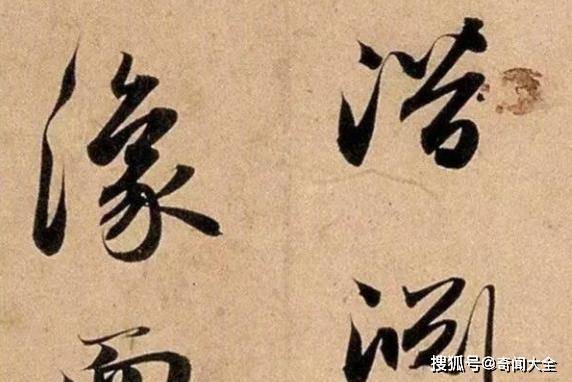 潜渊
像
搜狐号@奇闻大全